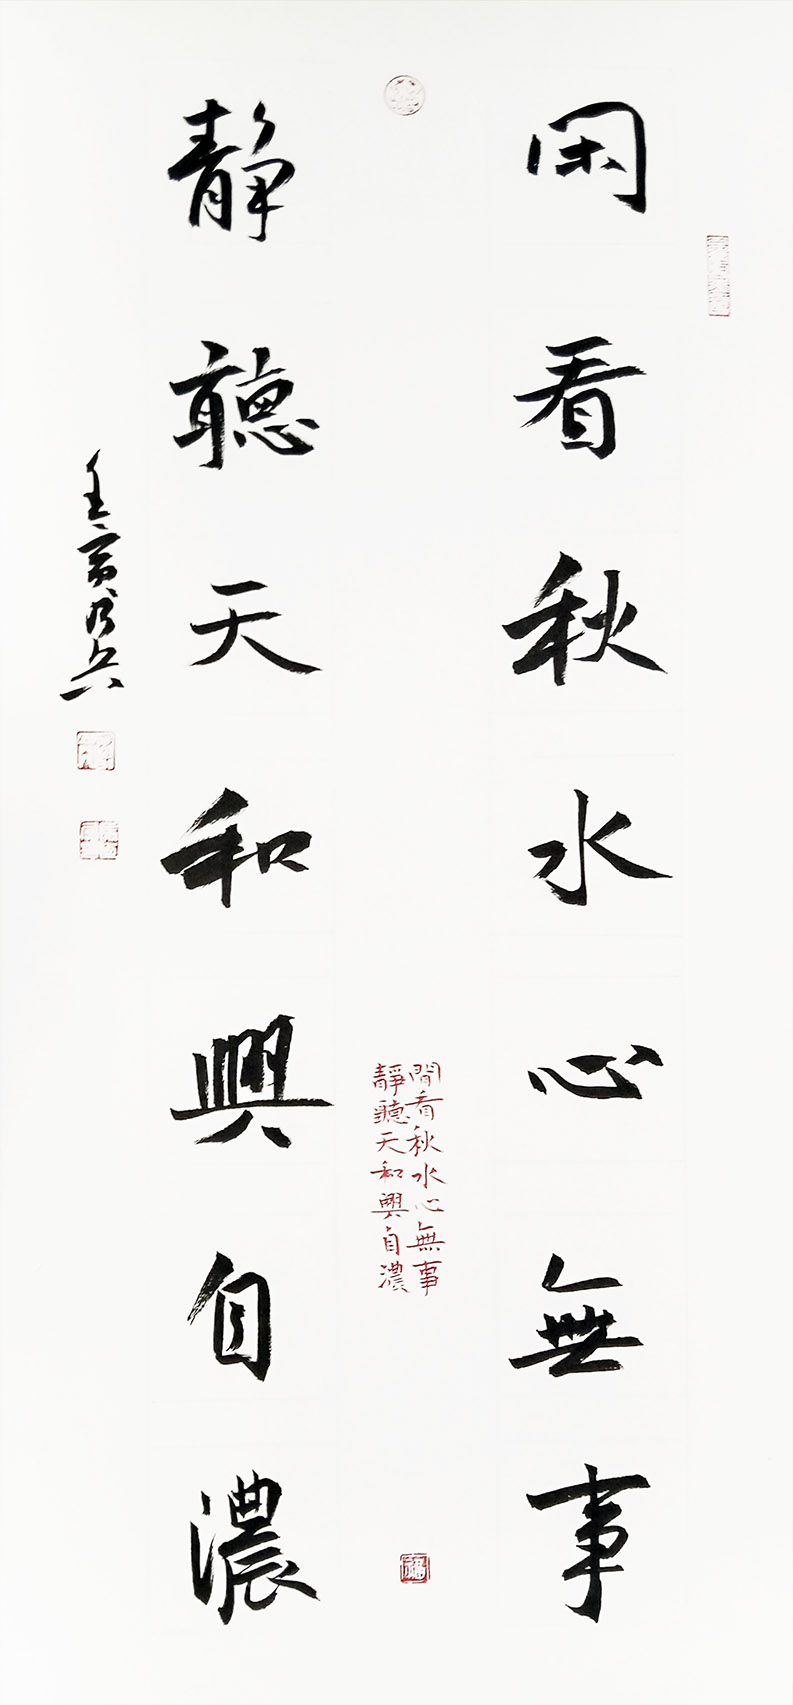 閑看秋水心無事
靜聽天和興自濃
閒看秋水心無事
靜聽天和興自濃
壬寅